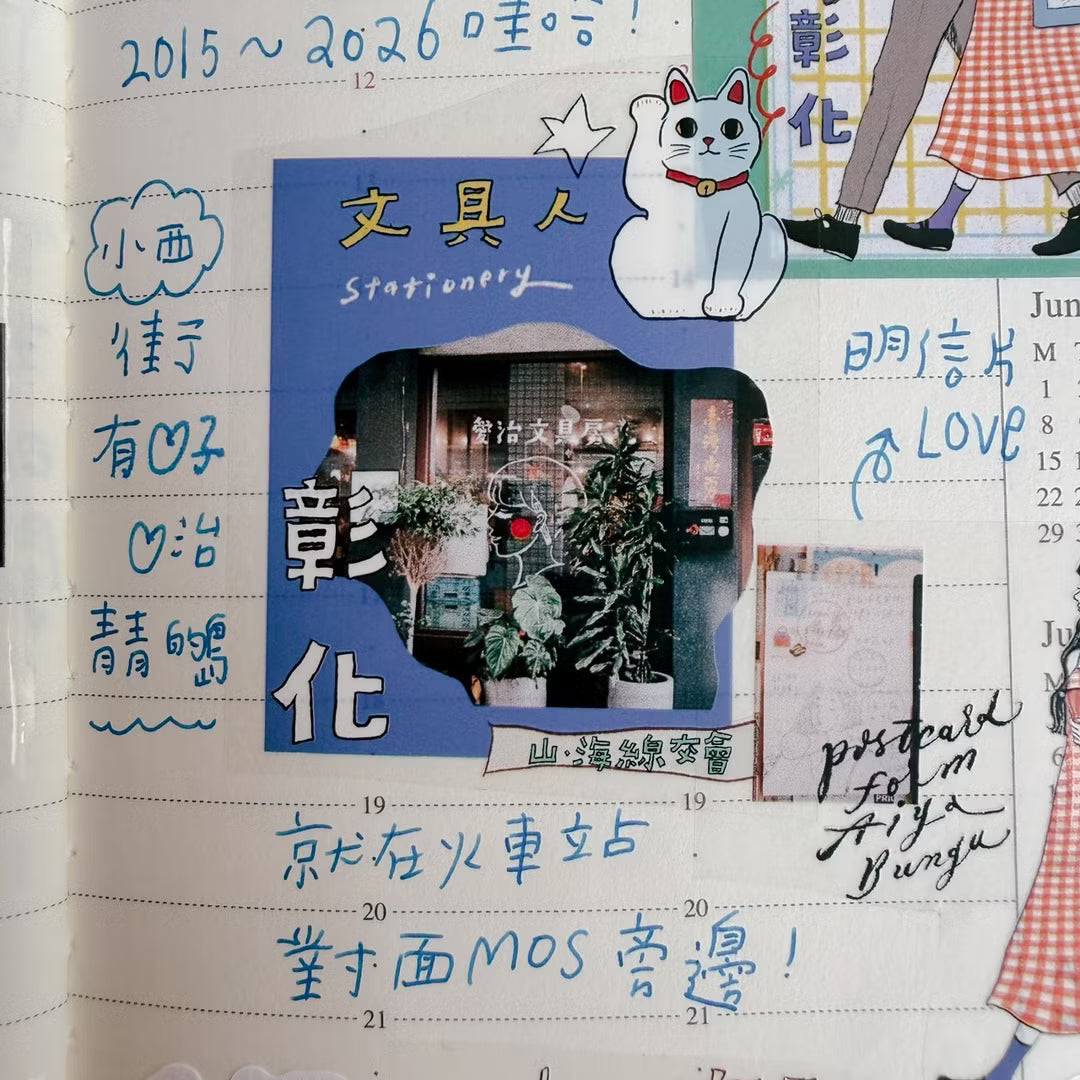 2015~2026 哇哈!
12
彰
化
文具人
Stationery
14
小西
街ㄋ
有♡子
♡治
青青的鳥
愛治文具房
彰
化
山·海線交會
明信片
LOVE
Jun
M
1
8
15
22
29
postcard
form
Aiya
Bungu
19 19
就在火車站
20 20
對面MOS旁邊!
21 21